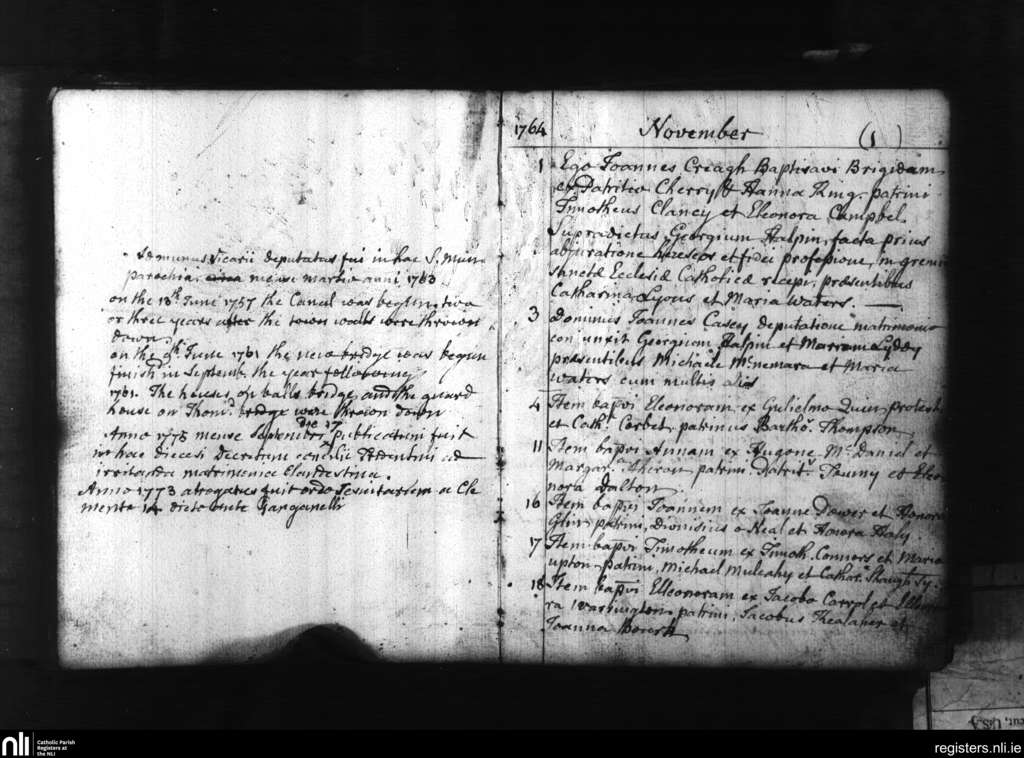 Idmunus Vicarii deputatus fui in hac S. Mun
parochia. mense martio anni 1763
on the 13th June 1757 the Canal was begun, two
or three years after the town walls were thrown
down.
on the 9th June 1761 the new bridge was begun
finish'd in Septemb. the year following
1761. The houses on balls bridge, and the guard
house on Thom.d bridge were thrown down
die 17
Anno 1775 mense Septembri publicatum fuit
in hac diecesi Decretum concilii Tridentini ad
irritanda matrimonia Clandestina.
Anno 1773 abrogatus fuit ordo Jesuitarum a Cle
mente 14 dicto ante Ganganelli
1764 November (1)
1 Ego Joannes Creagh Baptisavi Brigidam
ex Patritio Cherry & Hanna King. patrini
Timotheus Clancy et Eleonora Campbel.
Supradictus, Georgium Halpin, facta prius
abjuratione hæreseos et fidei professione, in gremi
sanctæ Ecclesiæ Catholicæ recepi, præsentibus
Catharina Lyons et Maria Waters.
3 dominus Joannes Casey deputatione matrimonio
conjunxit Georgium Halpin et Mariam Lyddy
præsentibus Michaele Mcnemara et Maria
Waters cum multis aliis
4 Item bapvi Eleonoram ex Gulielmo Quin protest
et Cath. Corbet, patrinus Bartho. Thompson
11 Item bapvi Annam ex Hugone Mc Daniel et
Margar.a patrini Patrit. et Eleo
nora Dalton.
16 Item bapvi Joannem ex Joanne Dower et Honora
Glin patrini, Dionisius o Neal et Honora Haly
17 Item bapvi Timotheum ex Timoth. Connors et Maria
upton patrini, Michael Mulcahy et Cathar.
18 Item bapvi Elleonoram ex Jacobo Carrol et Elleono
ra Warington patrini, Jacobus et
Joanna Bourk
nli Catholic Parish
Registers at
the NLI
registers.nli.ie